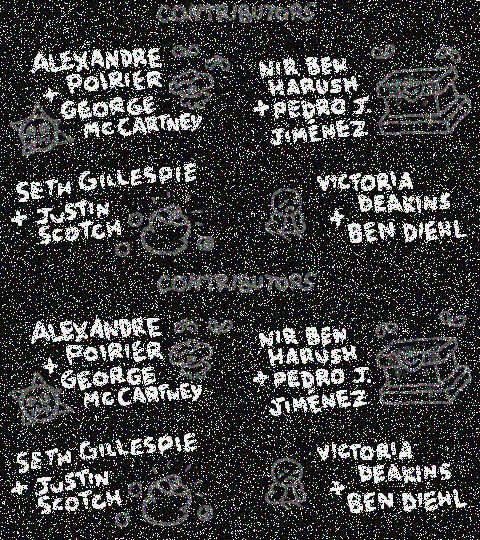 CONTRIBUTORS
ALEXANDRE
POIRIER
+ GEORGE
MCCARTNEY
NIR BEN
HARUSH
+ PEDRO J.
JIMENEZ
SETH GILLESPIE
+ JUSTIN
SCOTCH
VICTORIA
DEAKINS
+ BEN DIEHL
CONTRIBUTORS
ALEXANDRE
POIRIER
+ GEORGE
MCCARTNEY
NIR BEN
HARUSH
+ PEDRO J.
JIMENEZ
SETH GILLESPIE
+ JUSTIN
SCOTCH
VICTORIA
DEAKINS
+ BEN DIEHL